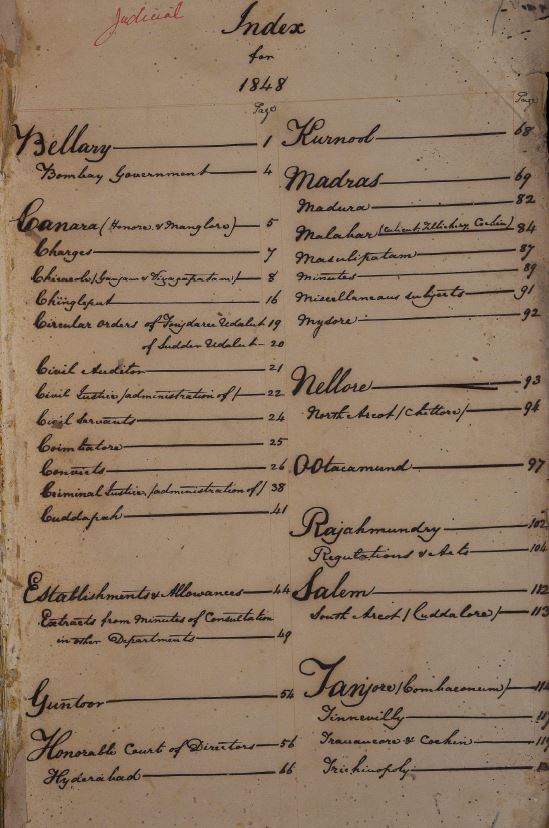 Judicial
Index
for
1848
Page
Bellary 1
Bombay Government 4
Canara (Honore & Manglore) 5
Charges 7
Chicacole (Ganjam & Vizagapatam) 8
Chingleput 16
Circular orders of Foujdaree Udalut 19
of Sudder Udalut 20
Civil Auditor 21
Civil Justice (administration of) 22
Civil Servants 24
Coimbatore 25
Convicts 26
Criminal Justice (administration of) 38
Cuddapah 41
Establishments & Allowances 44
Extracts from Minutes of Consultation
in other Departments 49
Guntoor 54
Honorable Court of Directors 56
Hyderabad 66
Page
Kurnool 68
Madras 69
Madura 82
Malabar (Calicut, Tellichery, Cochin) 84
Masulipatam 87
Minutes 89
Miscellaneous subjects 91
Mysore 92
Nellore 93
North Arcot (Chittore) 94
Ootacamund 97
Rajahmundry 102
Regulations & Acts 104
Salem 112
South Arcot (Cuddalore) 113
Tanjore (Combaconum)
Tinnevilly
Travancore & Cochin
Trichinopoly